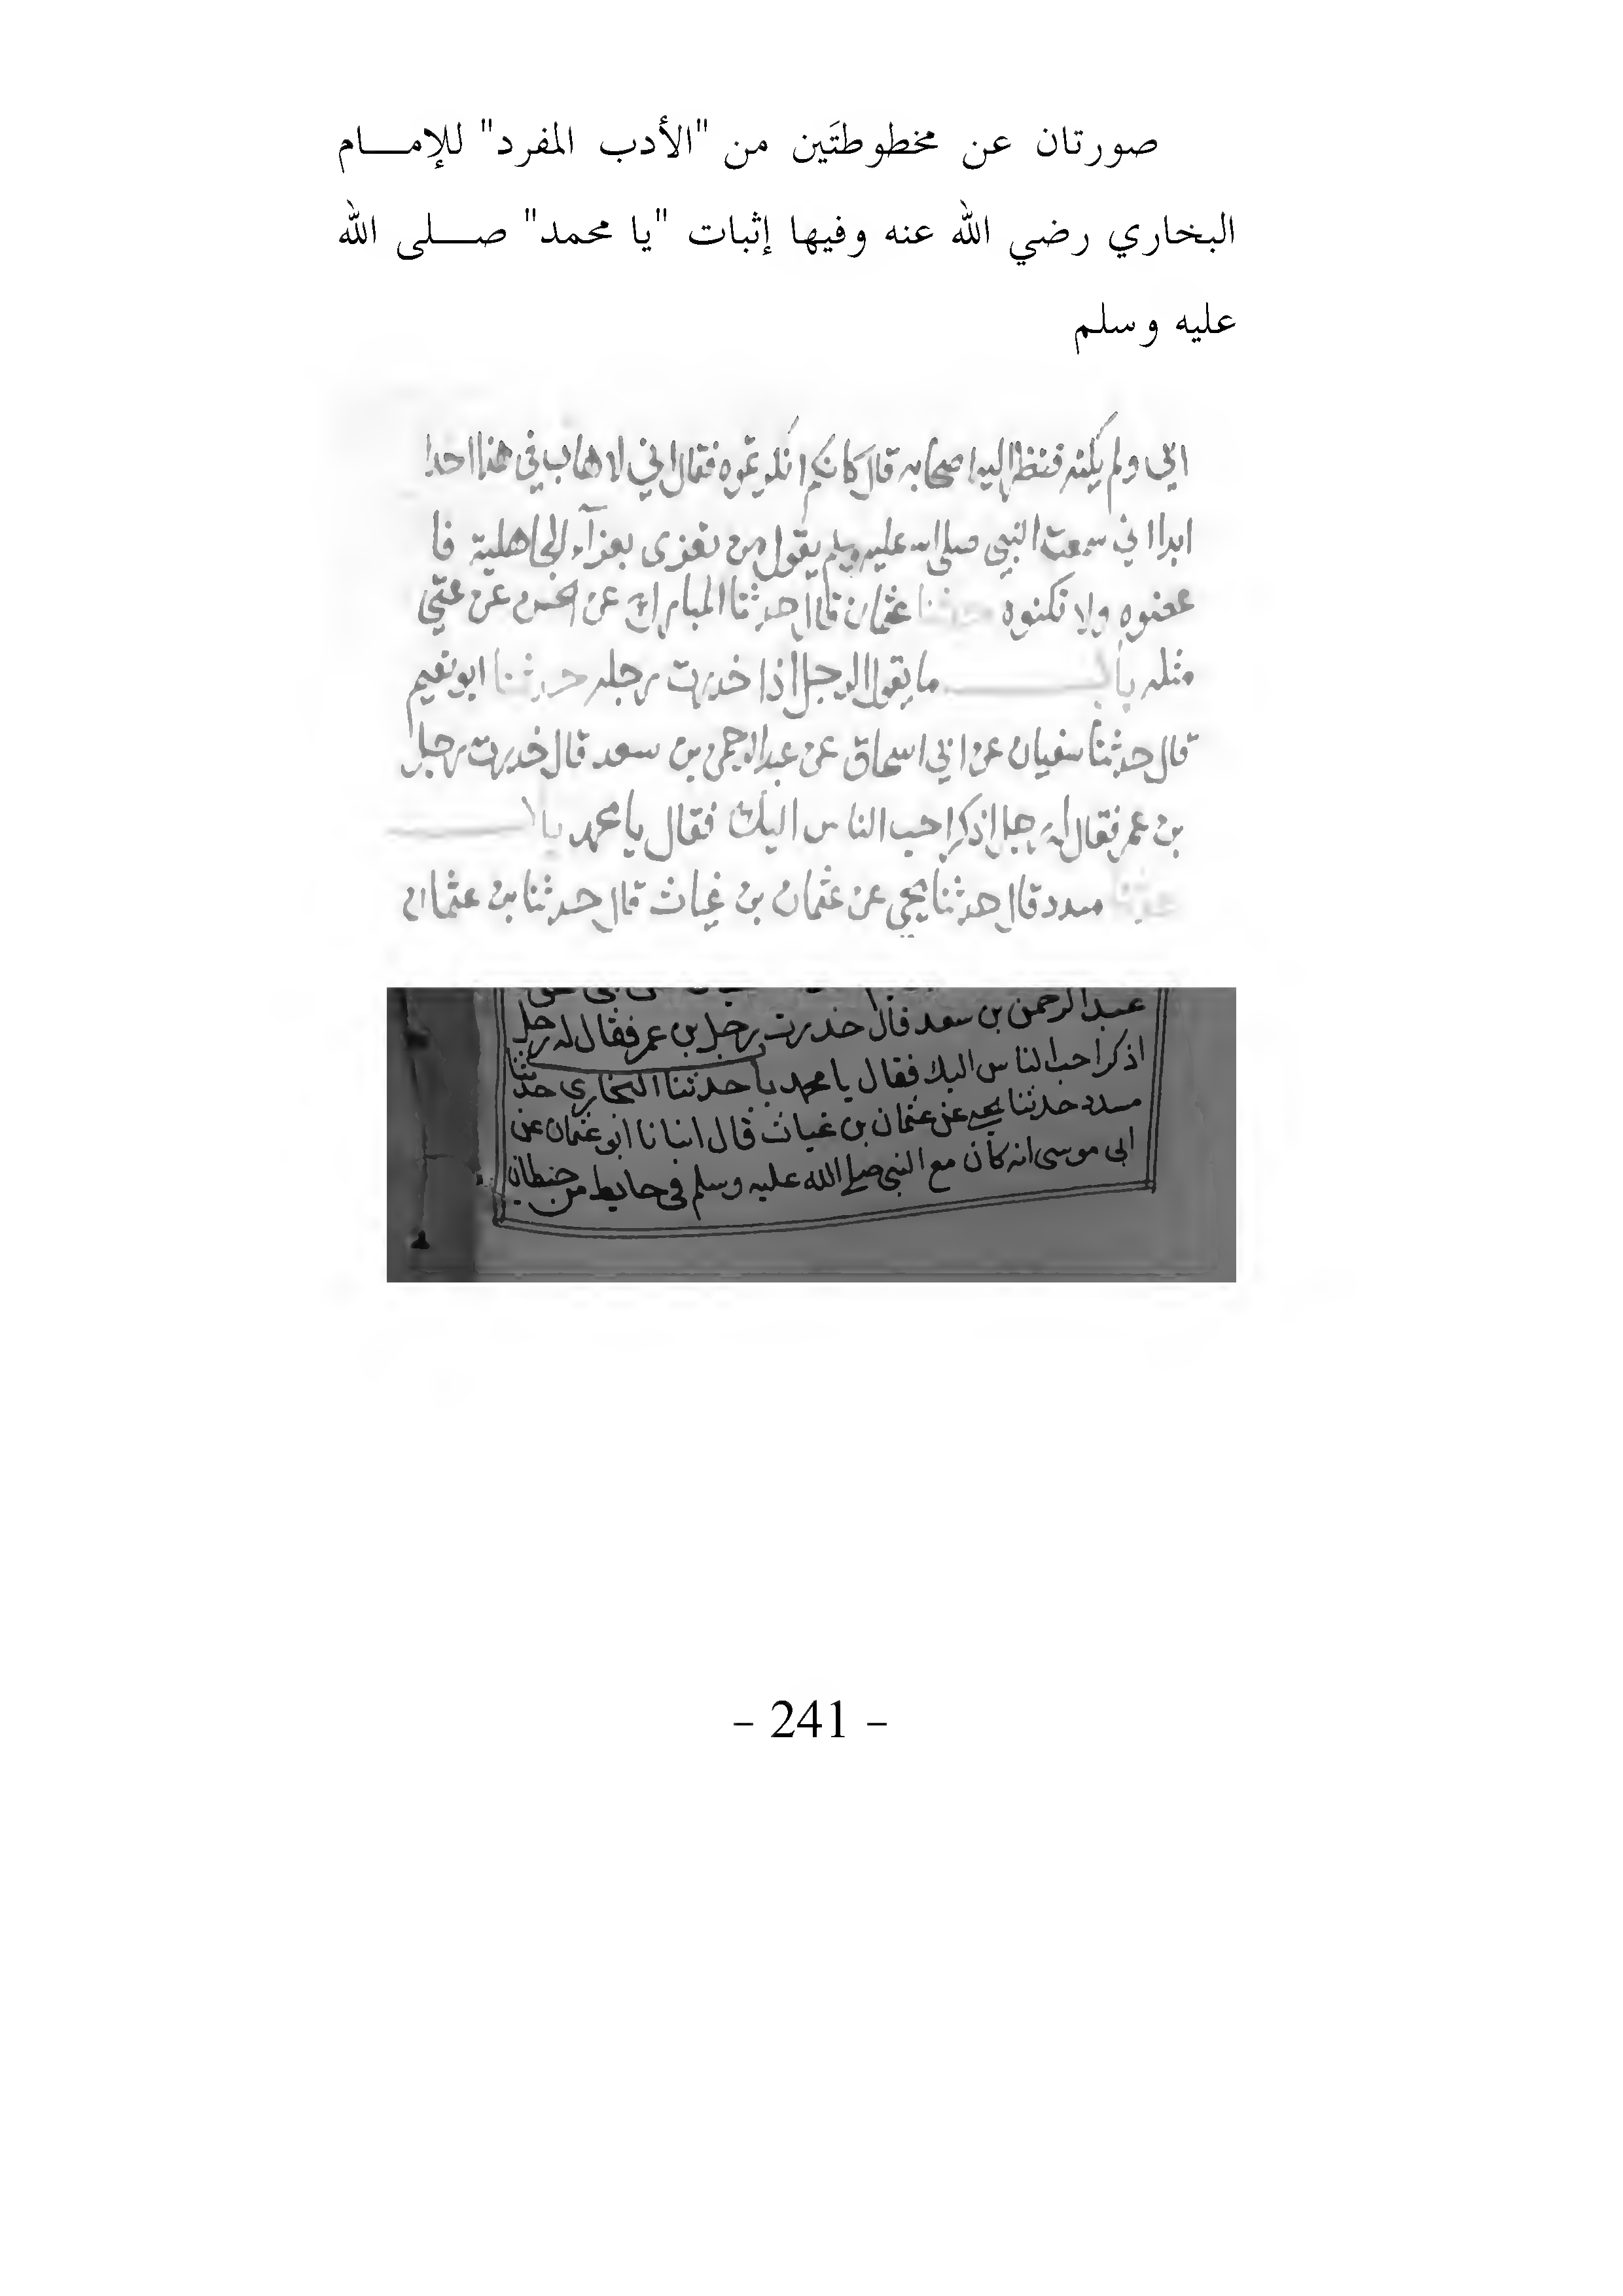 صورتان عن مخطوطتَين من "الأدب المفرد" للإمـــام
البخاري رضي الله عنه وفيها إثبات "يا محمد" صـــلى الله
عليه وسلم
ابي ولم يكنه فنظر اليه اصحابه قال كانكم انكرتموه فقال اني لا هاب في هذا احدا
ابدا اني سمعت النبي صلى الله عليه وسلم يقول من تعزى بعزآء الجاهلية فا
عضوه ولا تكنوه حدثنا عثمان قال حدثنا المبارك عن الحسن عن عتي
مثله باب ما يقول الرجل اذا خدرت رجله حدثنا ابو نعيم
قال حدثنا سفيان عن ابي اسحاق عن عبد الرحمن بن سعد قال خدرت رجل
بن عمر فقال له رجل اذكر احب الناس اليك فقال يا محمد باب
حدثنا مسدد قال حدثنا يحيى عن عثمان بن غياث قال حدثنا بن عثمان
عبد الرحمن بن سعد قال خدرت رجل بن عمر فقال له رجل
اذكر احب الناس اليك فقال يا محمد باب حدثنا البخاري حدثنا
مسدد حدثنا يحيى عن عثمان بن غياث قال انبانا ابو عثمان عن
ابى موسى انه كان مع النبي صلى الله عليه وسلم فى حايط من حيطان
- 241 -